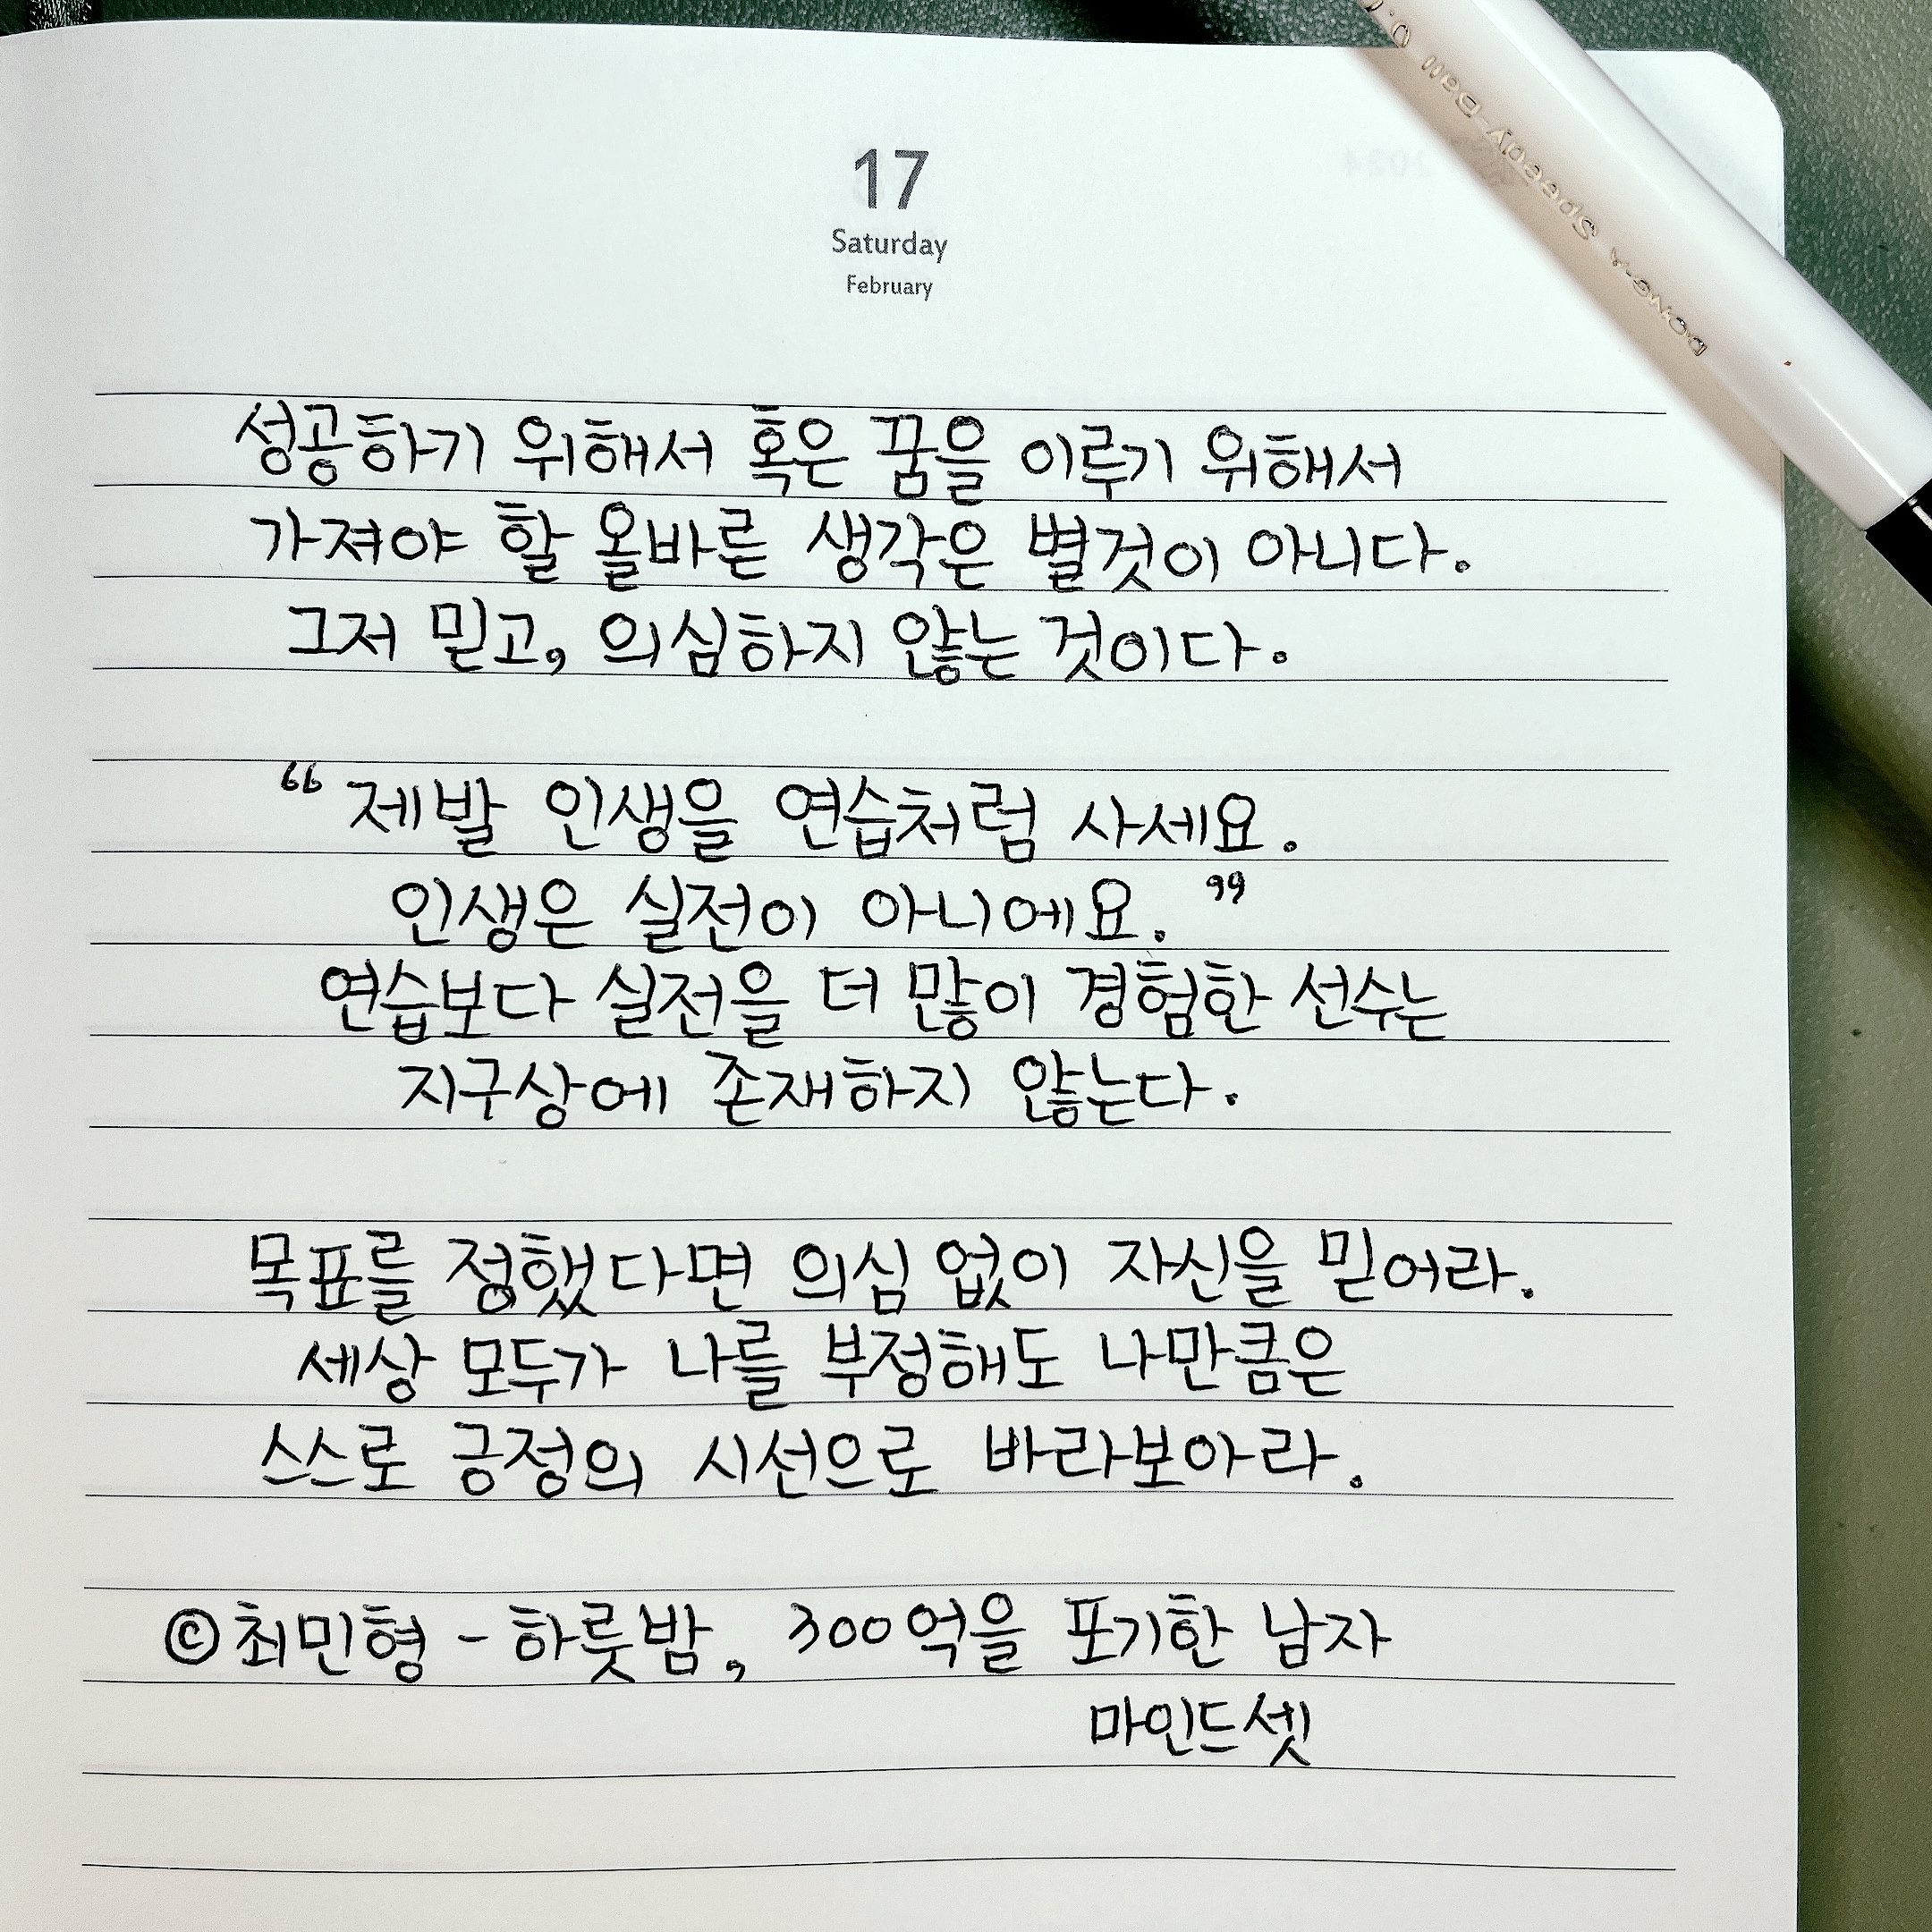 17
Saturday
February
성공하기 위해서 혹은 꿈을 이루기 위해서
가져야 할 올바른 생각은 별것이 아니다.
그저 믿고, 의심하지 않는 것이다.
“제발 인생을 연습처럼 사세요.
인생은 실전이 아니에요.”
연습보다 실전을 더 많이 경험한 선수는
지구상에 존재하지 않는다.
목표를 정했다면 의심 없이 자신을 믿어라.
세상 모두가 나를 부정해도 나만큼은
스스로 긍정의 시선으로 바라보아라.
©최민형 - 하룻밤, 300억을 포기한 남자
마인드셋
DONG-A Speedy-Ball
2024